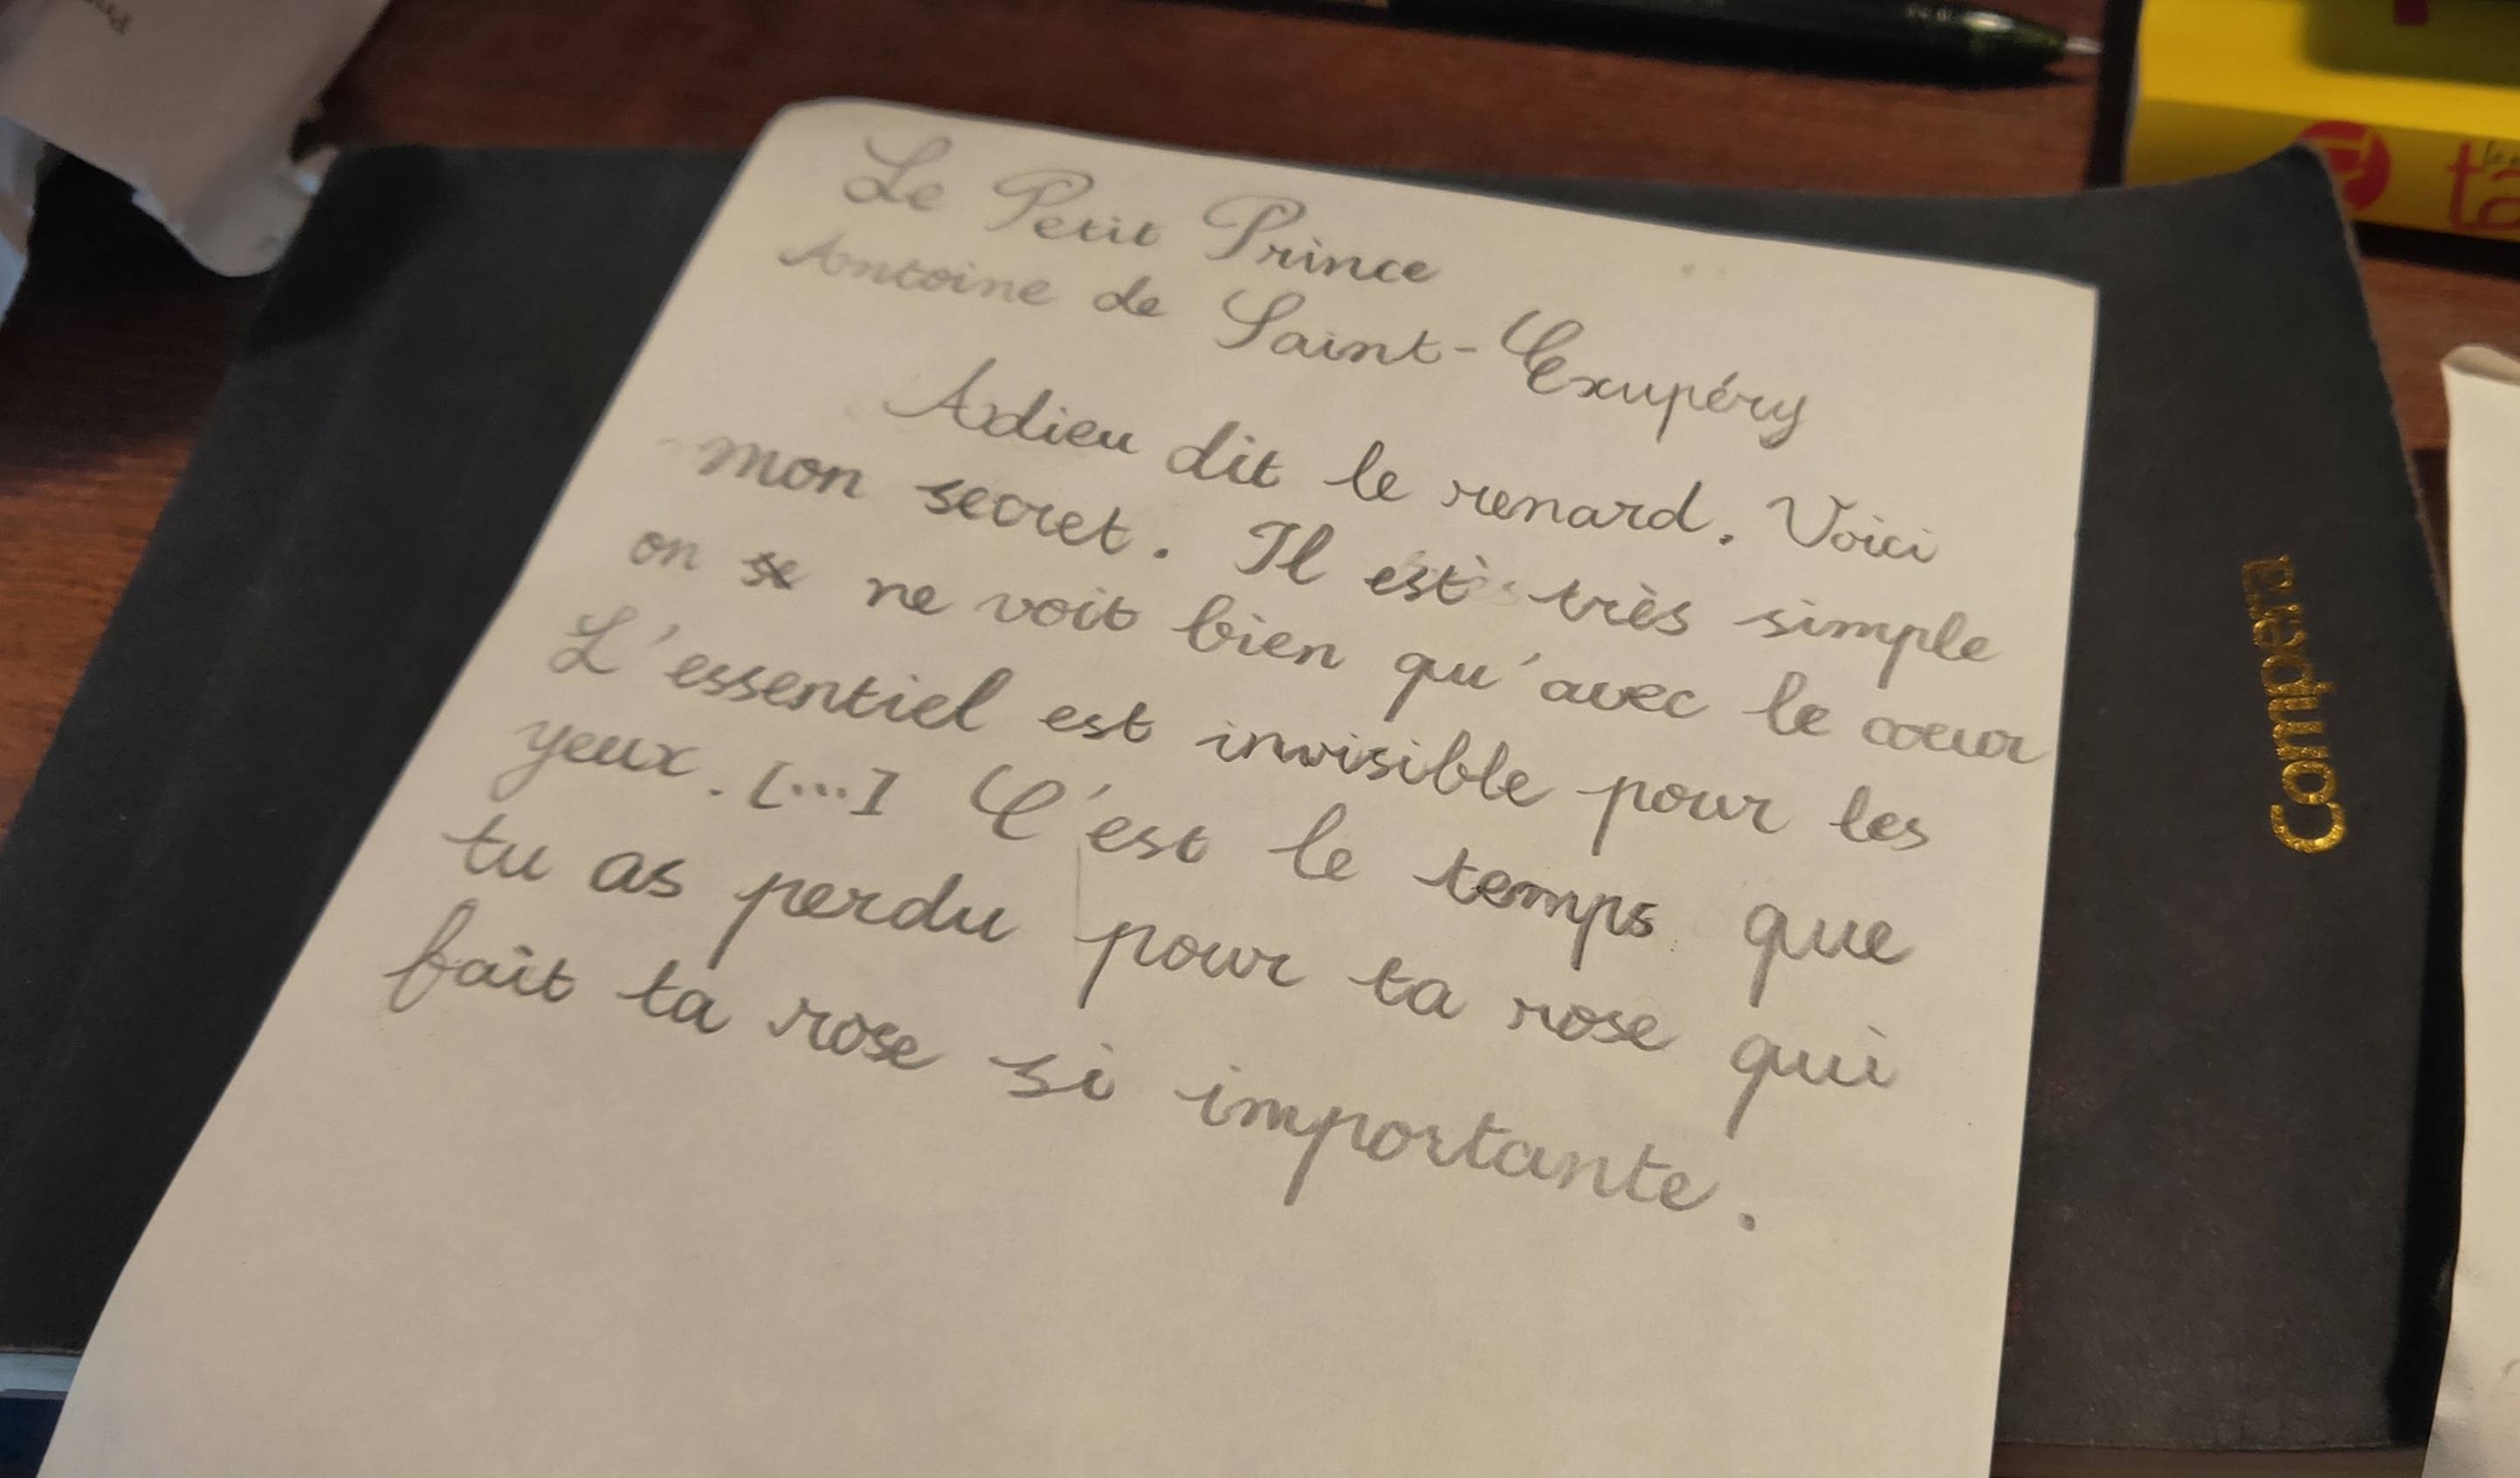 Le Petit Prince
Antoine de Saint-Exupéry
Adieu dit le renard. Voici
mon secret. Il est très simple
on ne voit bien qu'avec le coeur
L'essentiel est invisible pour les
yeux. [...] C'est le temps que
tu as perdu pour ta rose qui
fait ta rose si importante.
Compera